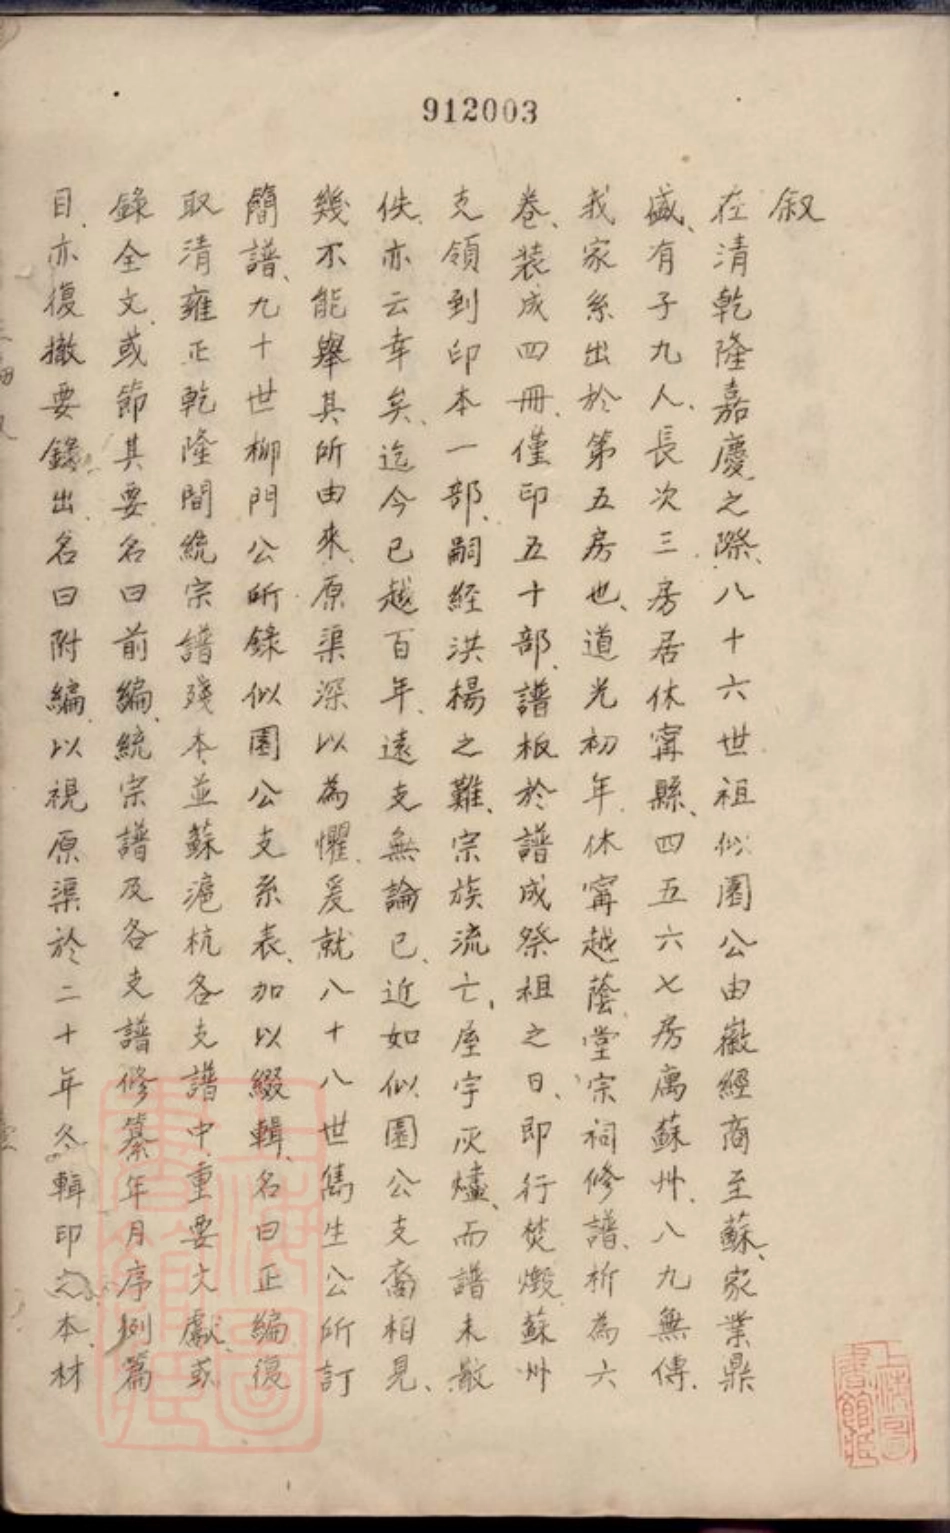 912003
叙
在清乾隆嘉慶之際、八十六世祖似園公由徽經商至蘇、家業鼎
盛、有子九人、長次三房居休寗縣、四五六七房寓蘇州、八九無傳、
我家系出於第五房也、道光初年、休寗越蔭堂宗祠修譜、析為六
卷、裝成四冊、僅印五十部、譜板於譜成祭祖之日、即行焚燬、蘇州
支領到印本一部、嗣経洪楊之難、宗族流亡、屋宇灰燼、而譜未散
佚、亦云幸矣、迄今已越百年、遠支無論已、近如似園公支裔相見、
幾不能舉其所由來、原渠深以為懼、爰就八十八世雋生公所訂
簡譜、九十世柳門公所錄似園公支系表、加以綴輯、名曰正編、復
取清雍正乾隆間統宗譜殘本並蘇滬杭各支譜中重要文獻、或
錄全文、或節其要、名曰前編、統宗譜及各支譜修纂年月序例篇
目、亦復撤要錄出、名曰附編、以視原渠於二十年冬輯印之本、材
上海圖書館藏
上海圖書館藏